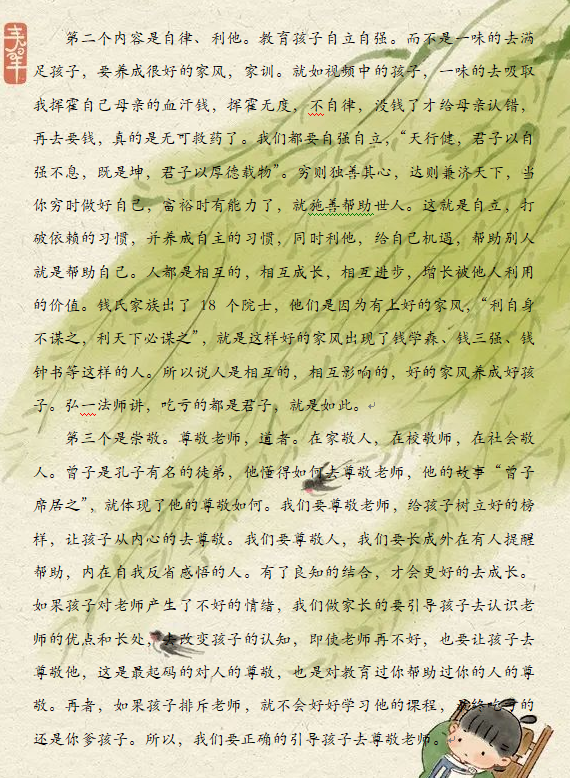 第二个内容是自律、利他。教育孩子自立自强。而不是一味的去满
足孩子，要养成很好的家风，家训。就如视频中的孩子，一味的去吸取
我挥霍自己母亲的血汗钱，挥霍无度，不自律，没钱了才给母亲认错，
再去要钱，真的是无可救药了。我们都要自强自立，“天行健，君子以自
强不息，既是坤，君子以厚德载物”。穷则独善其心，达则兼济天下，当
你穷时做好自己，富裕时有能力了，就施善帮助世人。这就是自立，打
破依赖的习惯，并养成自主的习惯，同时利他，给自己机遇，帮助别人
就是帮助自己。人都是相互的，相互成长，相互进步，增长被他人利用
的价值。钱氏家族出了 18 个院士，他们是因为有上好的家风，“利自身
不谋之，利天下必谋之”，就是这样好的家风出现了钱学森、钱三强、钱
钟书等这样的人。所以说人是相互的，相互影响的，好的家风养成好孩
子。弘一法师讲，吃亏的都是君子，就是如此。
第三个是崇敬。尊敬老师，道者。在家敬人，在校敬师，在社会敬
人。曾子是孔子有名的徒弟，他懂得如何去尊敬老师，他的故事“曾子
席居之”，就体现了他的尊敬如何。我们要尊敬老师，给孩子树立好的榜
样，让孩子从内心的去尊敬。我们要尊敬人，我们要长成外在有人提醒
帮助，内在自我反省感悟的人。有了良知的结合，才会更好的去成长。
如果孩子对老师产生了不好的情绪，我们做家长的要引导孩子去认识老
师的优点和长处，去改变孩子的认知，即使老师再不好，也要让孩子去
尊敬他，这是最起码的对人的尊敬，也是对教育过你帮助过你的人的尊
敬。再者，如果孩子排斥老师，就不会好好学习他的课程，最终吃亏的
还是你爹孩子。所以，我们要正确的引导孩子去尊敬老师。